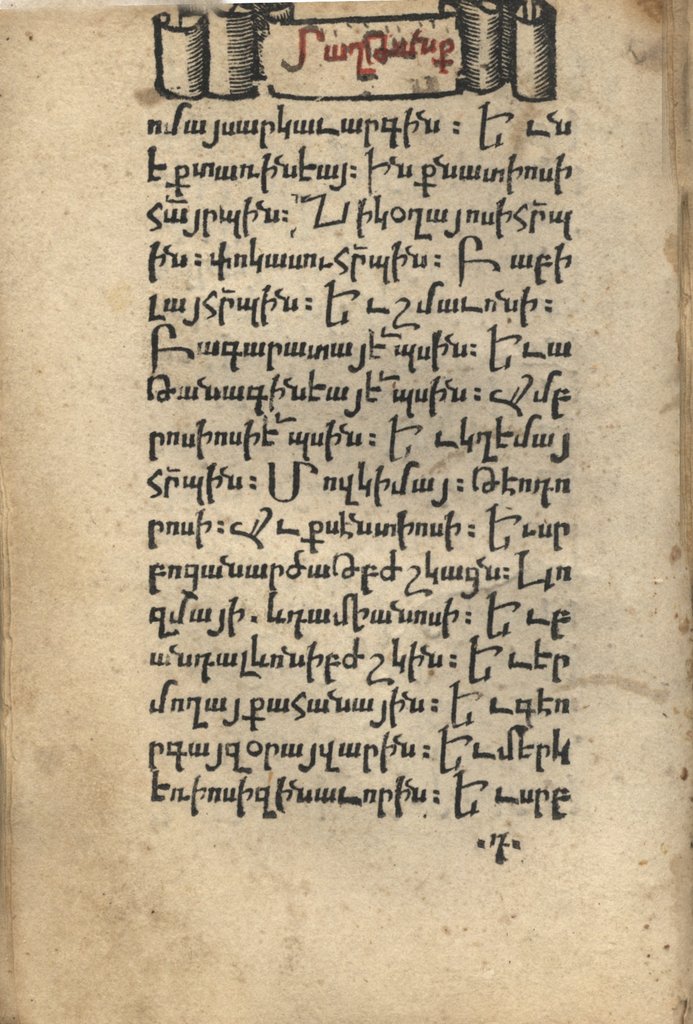 Մաղթանք
ոմայսարկաւարգին : Եւ ւն
է քտառինէայ : Իննքնատիոսի
հա՟յրպին : Նիկօղայոսիհր՟պ
ին : փոկասուհր՟պին : Բաբի
լայհր՟պին : Եւ շմաւոնի :
Բագարատայե՟պսին : Եւ ա
թանագինէայե՟պսին : Ամբ
րոսիոսիե՟պսին : Եւ կղէմայ
հր՟պին : Մովկիմայ : Թէոդո
րոսի : Աւքսէնտիոսի : Եւ սր
բոցանարժաթբժշկացն : Կո
զմայի . և դամիանոսի : Եւ բ
անդալևոնիբժշկին : Եւ եր
մողայքահանային : Եւ գէո
րգայզօրավարին : Եւ մերկ
էռիոսիզինաւորին : Եւ սրբ
·դ·